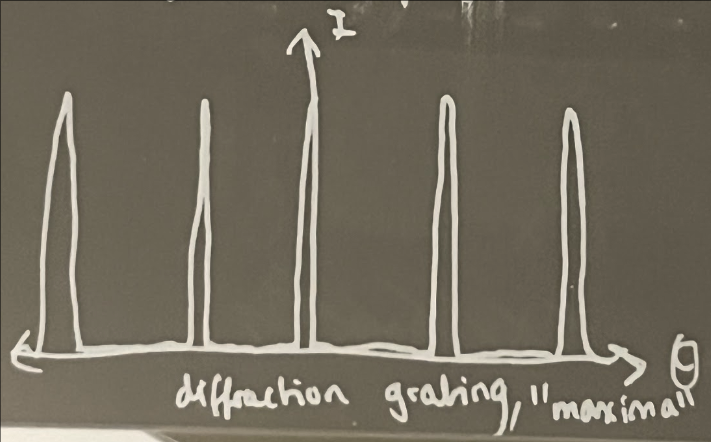 I
θ
diffraction grating, "maxima"